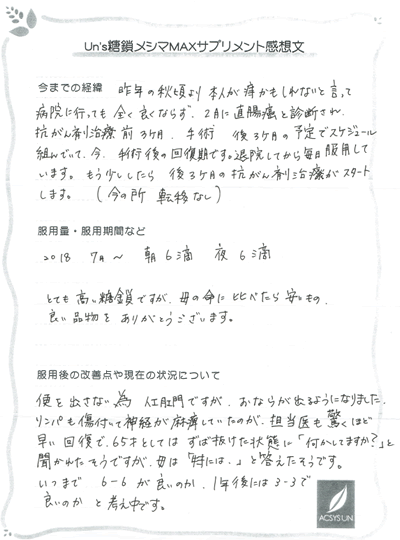 Un's糖鎖メシマMAXサプリメント感想文
今までの経緯 昨年の秋頃より 本人が痔かもしれないと言って
病院に行っても全く良くならず、2月に直腸癌と診断され、
抗がん剤治療前3ヶ月、手術 後3ヶ月の予定でスケジュール
組んでいて、今、手術後の回復期です。退院してから毎日服用して
います。もう少ししたら 後3ヶ月の抗がん剤治療がスタート
します。(今の所 転移なし)
服用量・服用期間など
2018 7月〜 朝6滴 夜6滴
とても高い糖鎖ですが、母の命に比べたら安いもの、
良い品物を ありがとうございます。
服用後の改善点や現在の状況について
便を出さない為 人工肛門ですが、おならが出るようになりました。
リンパも傷付いて神経が麻痺していたのが、担当医も驚くほど
早い回復で、65才としては ずば抜けた状態に「何かしてますか?」と
聞かれたそうですが、母は「特には・」と答えたそうです。
いつまで 6-6 が良いのか、1年後には3-3で
良いのか と考え中です。
ACSYS UN